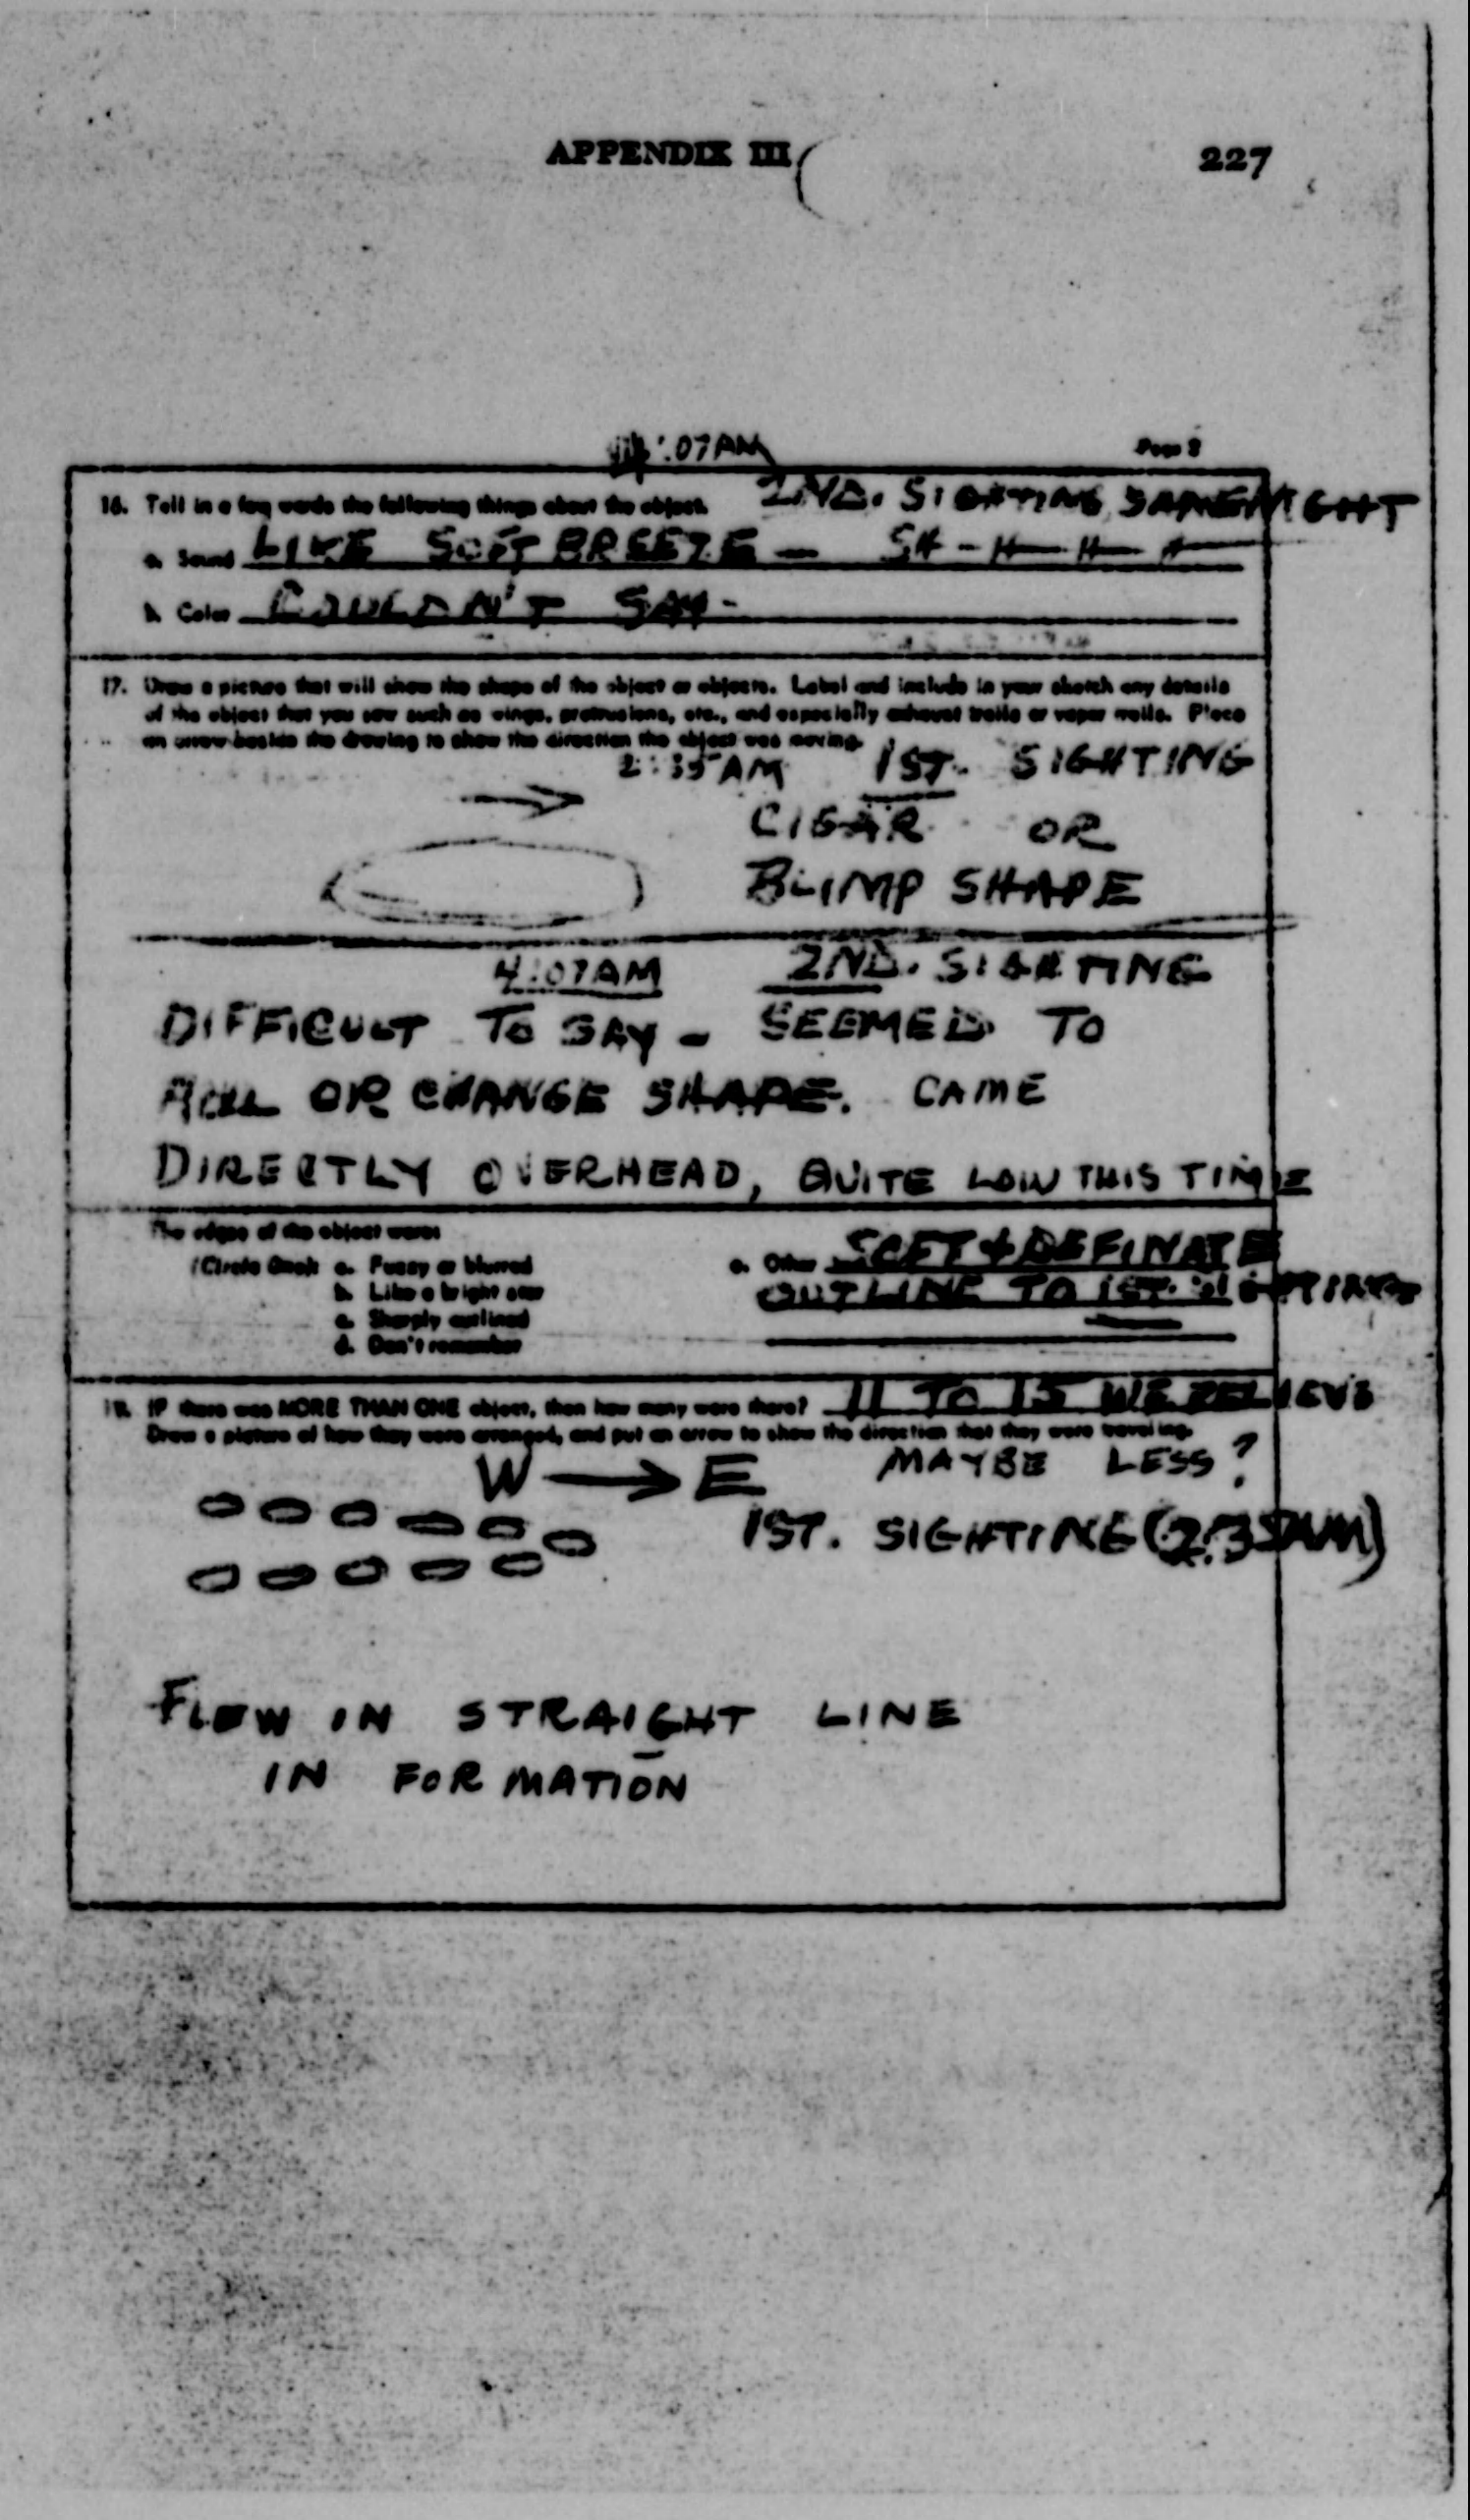 APPENDIX III
227
:07AM
Page
16. Tell in a few words the following things about the object. 2ND. SIGHTING SAME NIGHT
a. Sound LIKE SOFT BREEZE - SH-H-H-H
b. Color COULDN'T SAY-
17. Draw a picture that will show the shape of the object or objects. Label and include in your sketch any details
of the object that you saw such as wings, protrusions, etc., and especially exhaust trails or vapor trails. Place
an arrow beside the drawing to show the direction the object was moving.
2:35AM 1ST. SIGHTING
CIGAR OR
BLIMP SHAPE
4:07AM 2ND. SIGHTING
DIFFICULT TO SAY - SEEMED TO
ROLL OR CHANGE SHAPE. CAME
DIRECTLY OVERHEAD, QUITE LOW THIS TIME
The edges of the object were:
(Circle One): a. Fuzzy or blurred
b. Like a bright star
c. Sharply outlined
d. Don't remember
e. Other SOFT & DEFINATE
OUTLINE TO 1ST. SIGHTING
IF there was MORE THAN ONE object, then how many were there? 11 TO 15 WE BELIEVE
Draw a picture of how they were arranged, and put an arrow to show the direction that they were traveling.
W → E MAYBE LESS?
1ST. SIGHTING (2:35AM)
FLEW IN STRAIGHT LINE
IN FORMATION